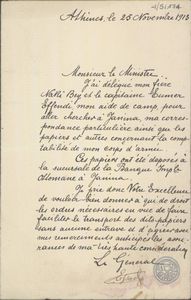 Athènes, le 25 Novembre 1913
Monsieur le Ministre
J'ai délégué mon frère
Nakki Bey et le capitaine Eumer
Effendi, mon aide de camp pour
aller chercher à Janina, ma cor-
respondance particulière ainsi que les
papiers et autres concernant la comp-
tabilité de mon corps d'armée.
Ces papiers ont été déposés à
la sucursale de la Banque
Ottomane à Janina.
Je prie donc Votre Excellence
de vouloir bien donner à qui de droit
les ordres nécessaires en vue de faci-
liter le transport des dits papiers
sans aucune entrave et d'agréer avec
mes remerciements anticipés les assu-
rances de ma très haute considération
Le Général